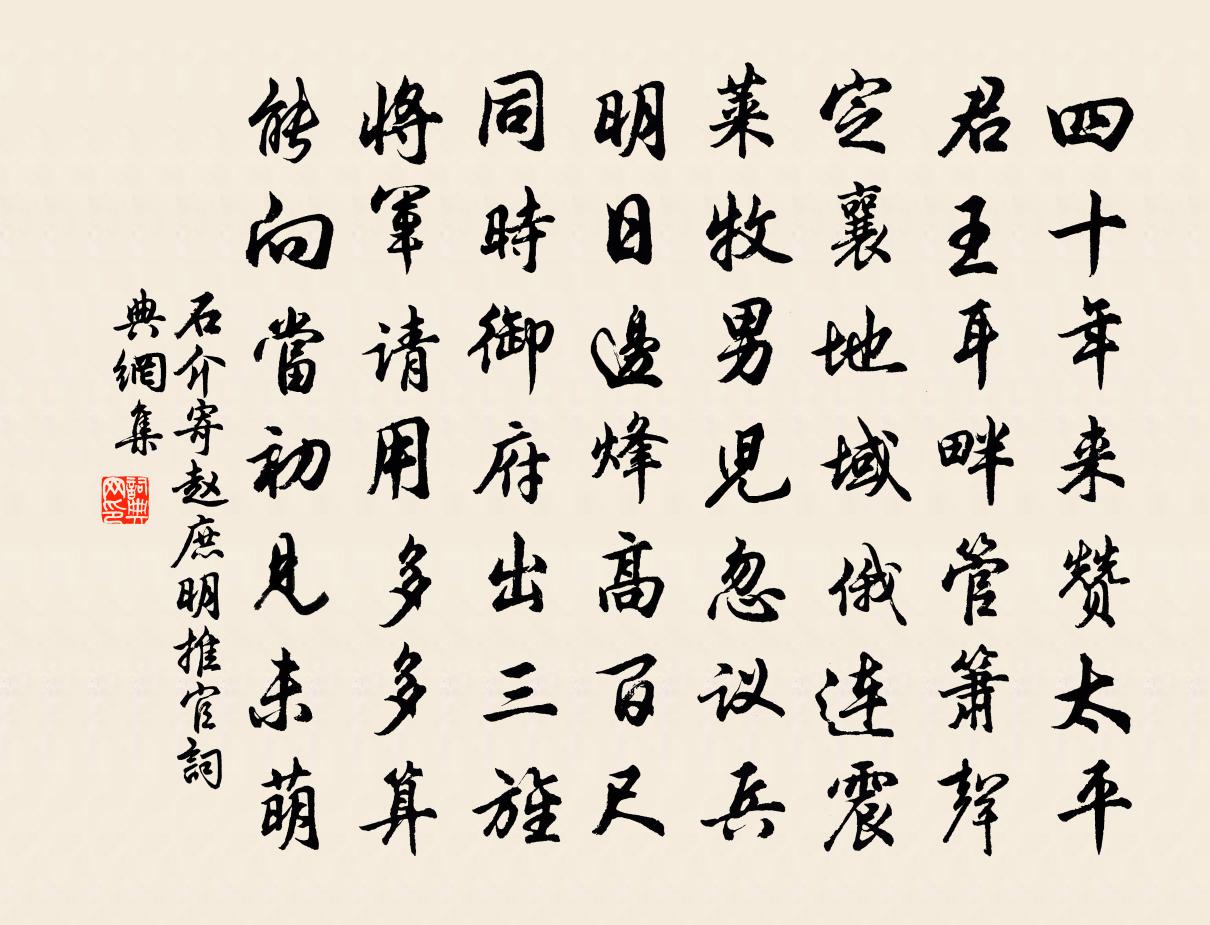 四十年来赞太平
君王耳畔管箫声
定襄地域俄连震
莱牧男儿忽议兵
明日边烽高百尺
同時御府出三旌
将軍请用多多算
能向當初见未萌
石介寄赵庶明推官詞
典網集
詞典
网印